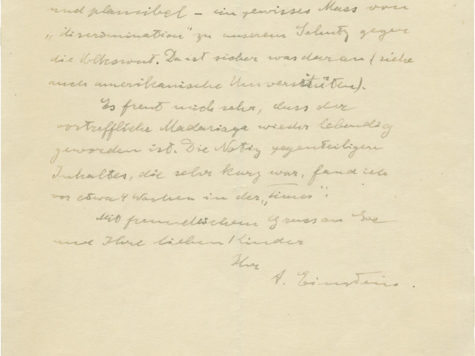 und plausibel – ein gewisses Mass von
„discrimination" zu unserem Schutz gegen
die Volkswut. Da ist sicher was daran (siehe
auch amerikanische Universitäten).
Es freut mich sehr, dass der
vortreffliche Madariaga wieder lebendig
geworden ist. Die Notiz gegenteiligen
Inhaltes, die sehr kurz war, fand ich
vor etwa 4 Wochen in der „Times".
Mit freundlichem Gruss an Sie
und Ihre lieben Kinder
Ihr
A. Einstein.